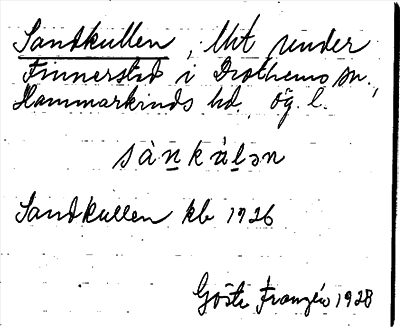 Sandkullen, lht under
Finnerstad i Drothems sn.,
Hammarkinds hd, Ög. l.
sànkálən
Sandkullen kb 1926
Gösta Franzén 1928